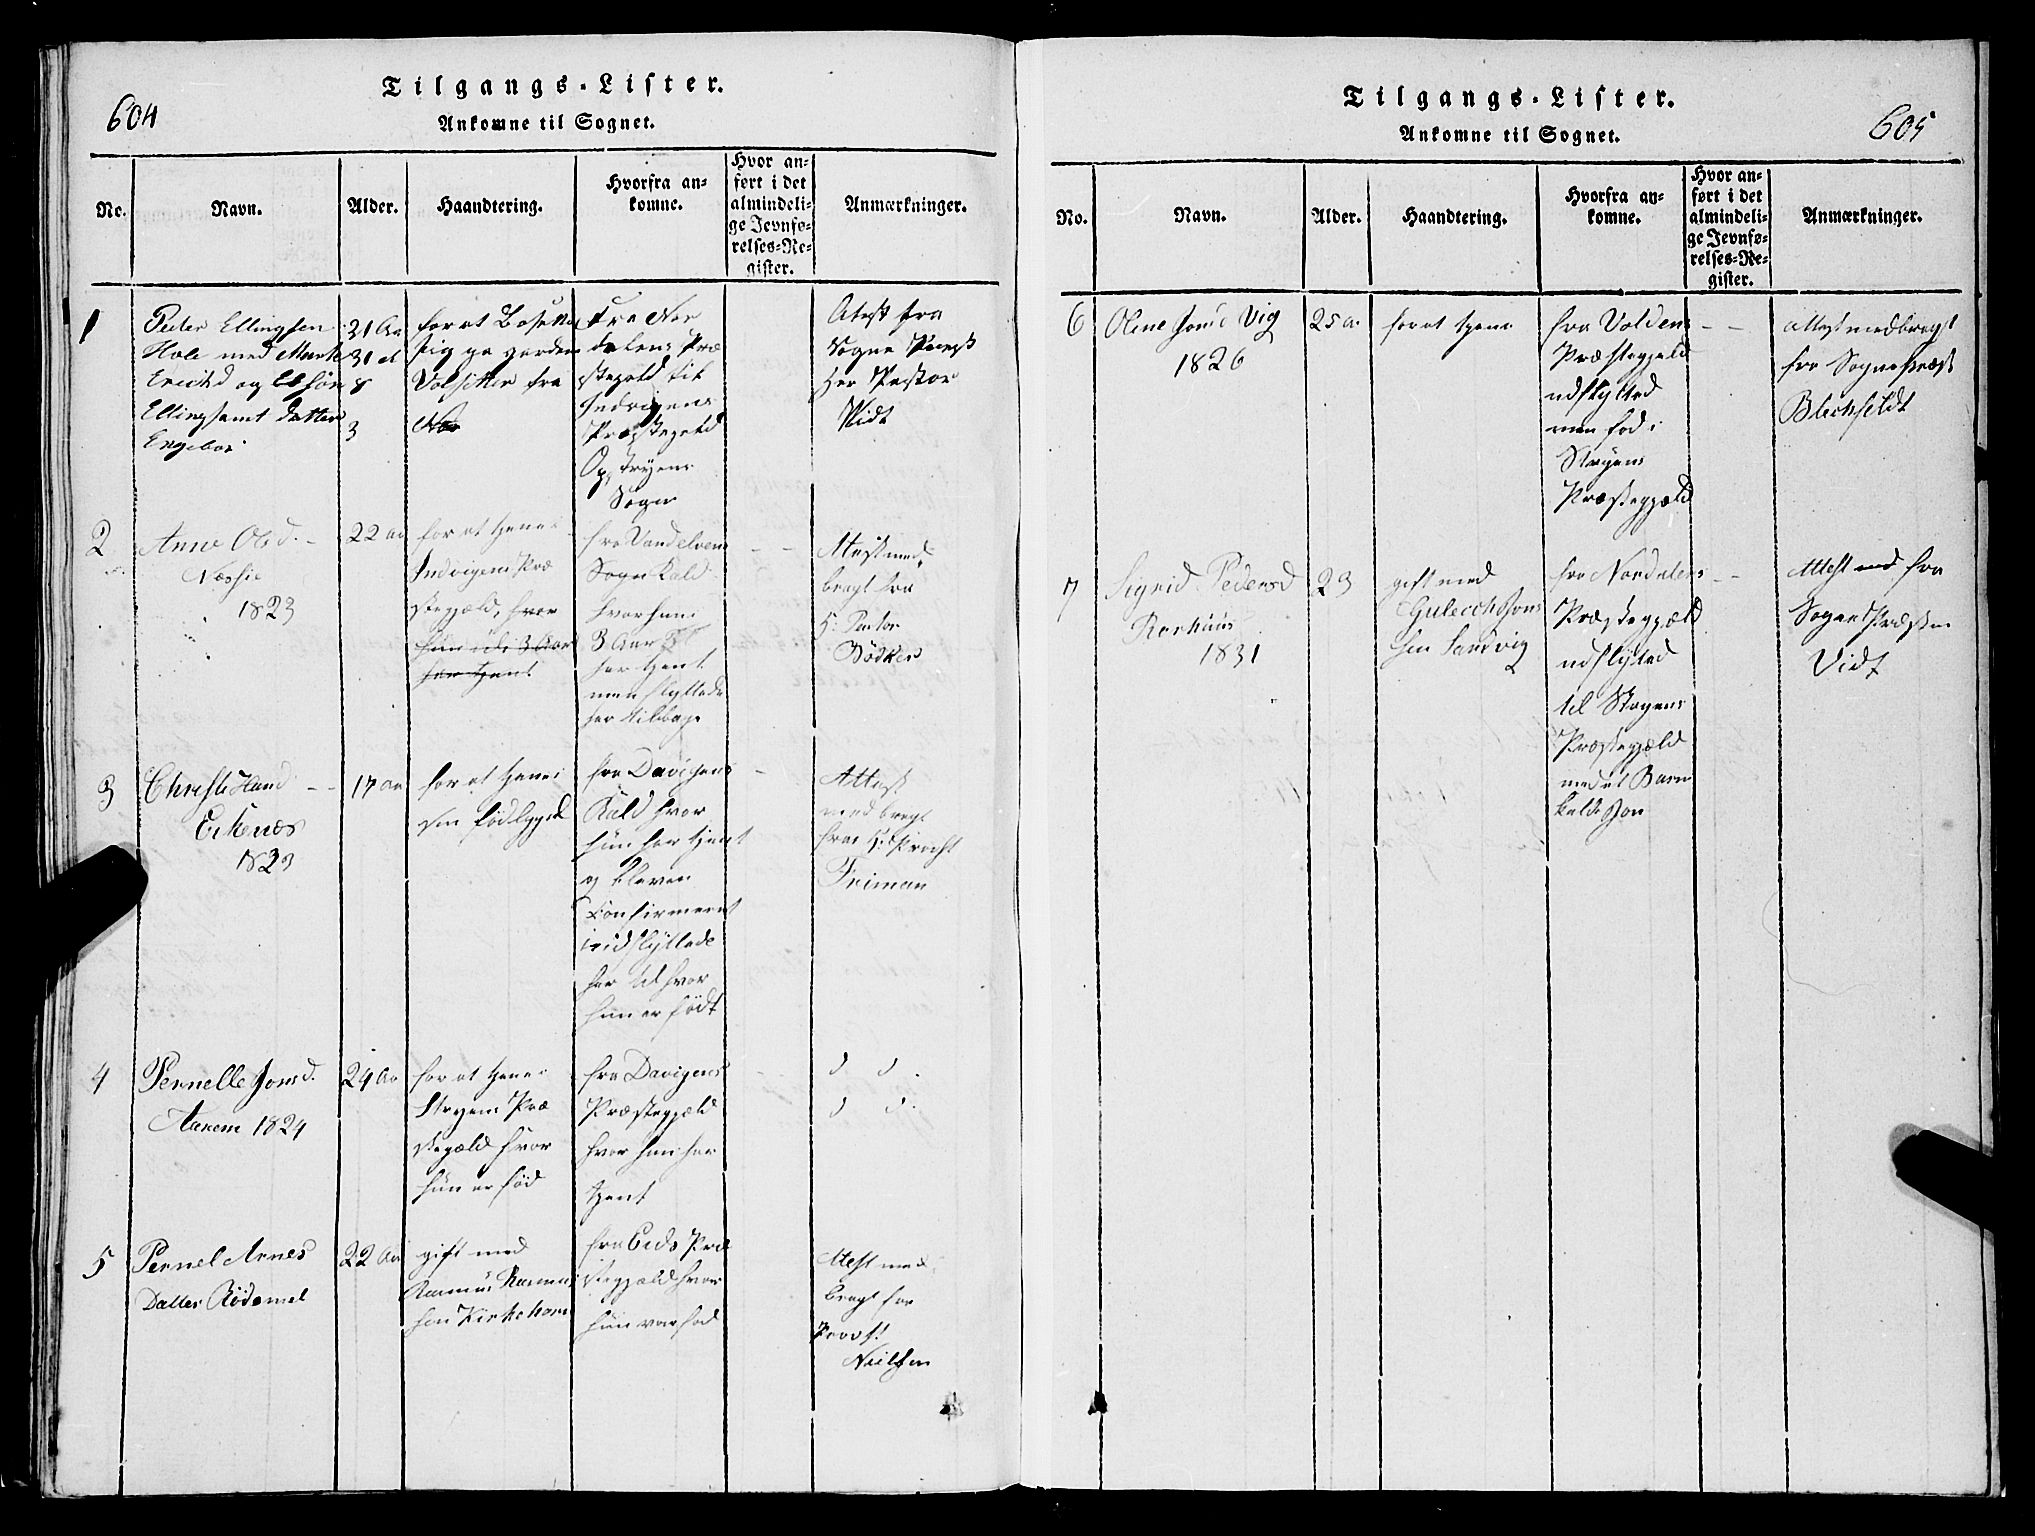 604
Tilgangs-Lister.
Ankomne til Sognet.
No.
Navn.
Alder.
Haandtering.
Hvorfra an-
komne.
Hvor an-
ført i det
almindeli-
ge Jevnfø-
relses-Re-
gister.
Anmærkninger.
1
Peder Ellingsen
Hole med Marte
Ericksd og Søn
Elling samt datter
Engebor
31 Aa
31 d
8
3
for at Bosette
sig pa garden
Volsetter fra
Nor
Fra Nor
dalens Præ
stegeld til
Indvigens
Præstegeld
Op stryens
Sogn
Atest fra
Sogne Prest
Her Pastor
Vidt
2
Anne Olsd.
Næssie
1823
22 aa
for at tjene i
Indvigens Præ
stegjæld, hvor
hun i de 3 Aar
har tjent
fra Vandelvens
Sogn Kald
hvor hun i
3 Aar
har tjent
men flyttede
her tilbage
Attest med
bragt fra
H. Pastor
Bødker
3
Christi Hansd
Eikenæs
1823
17 aa
for at tjene i
sin fødebygd
fra Davigens
Kald hvor
hun har tjent
og bleven
Confirmeret
udflyttede
her til hvor
hun er født
Attest
medbragt
fra H. Provst
Friman
4
Pernelle Jonsd.
Aarnem 1824
24 Aa
for at tjene i
Stryens Præ
stegæld hvor
hun er fød
fra Davigens
Præstegjæld
hvor hun har
tjent
d d.
d d.
5
Pernel Arnes
Datter Rødsmel
22 Aa
gift med
Rasmus Rasmus
sen Kirkehorn
fra Eids Præ
stegjæld hvor
hun var fød
Attest med
bragt fra
Provst
Nielsen
Tilgangs-Lister.
Ankomne til Sognet.
605
No.
Navn.
Alder.
Haandtering.
Hvorfra an-
komne.
Hvor an-
ført i det
almindeli-
ge Jevnfø-
relses-Re-
gister.
Anmærkninger.
6
Oline Jonsd Vig
1826
25 a.
for at tjene
fra Voldens
Præstegjeld
udflytted
men fød i
Stryens
Præstegjæld
attest medbragt
fra Sognepræst
Blechfeldt
7
Sigrid Pedersd
Rørhuus
1831
23
gift med
Gulecch Jons
sen Sandvig
fra Nordalens
Præstegjæld
udflytted
til Stryens
Præstegjæld
med et Barn
kaldet Jon
Attest med fra
Sogne Præsten
Vidt